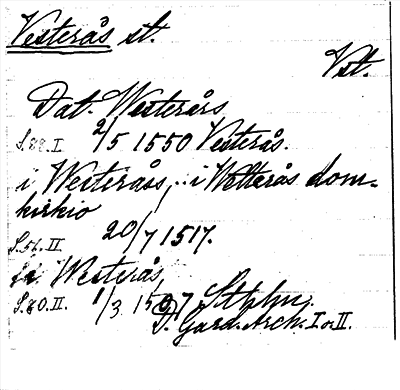 Vesterås st.
Vst.
Dat. Westerårs
S.88.I. 2/5 1550 Vesterås.
i Westeråss, .. i Westerås dom-
kirkio
S.56.II. 20/7 1517.
i Westerås,
S.80.II. 1/3 1507 Stphn.
D. Gard. Arch. I o II.